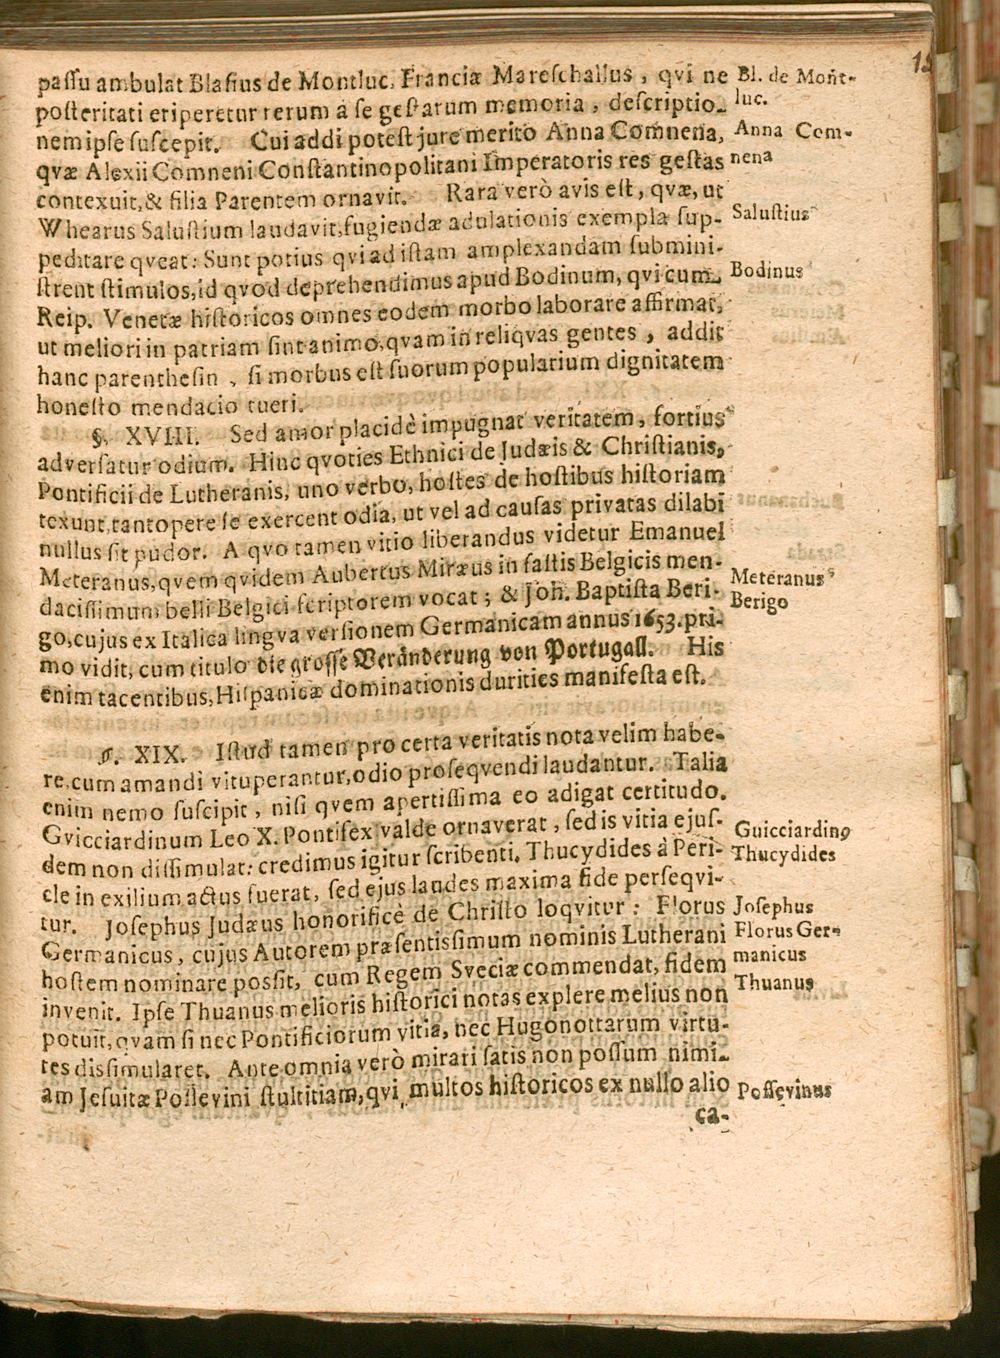 passu ambulat Blasius de Montluc. Franciæ Mareschallus, qvi ne
posteritati eriperetur rerum à se gestarum memoria, descriptio-
nem ipse suscepit. Cui addi potest jure merito Anna Comnena,
qvæ Alexii Comneni Constantinopolitani Imperatoris res gestas
contexuit, & filia Parentem ornavit. Rara verò avis est, qvæ, ut
Whearus Salustium laudavit, fugiendæ adulationis exempla sup-
peditare qveat: Sunt potius qvi ad istam amplexandam submini-
strent stimulos, id qvod deprehendimus apud Bodinum, qvi cum
Reip. Venetæ historicos omnes eodem morbo laborare affirmat,
ut meliori in patriam sint animo, qvam in reliqvas gentes, addit
hanc parenthesin, si morbus est suorum popularium dignitatem
honesto mendacio tueri.
§. XVIII. Sed amor placidè impugnat veritatem, fortius
adversatur odium. Hinc qvoties Ethnici de Judæis & Christianis,
Pontificii de Lutheranis, uno verbo, hostes de hostibus historiam
texunt, tantopere se exercent odia, ut vel ad causas privatas dilabi
nullus sit pudor. A qvo tamen vitio liberandus videtur Emanuel
Meteranus, qvem qvidem Aubertus Miræus in fastis Belgicis men-
dacissimum belli Belgici scriptorem vocat; & Joh. Baptista Beri-
go, cujus ex Italica lingva versionem Germanicam annus 1653. pri-
mo vidit, cum titulo die grosse Veränderung von Portugall. His
enim tacentibus, Hispanicæ dominationis durities manifesta est.
§. XIX. Istud tamen pro certa veritatis nota velim habe-
re, cum amandi vituperantur, odio proseqvendi laudantur. Talia
enim nemo suscipit, nisi qvem apertissima eo adigat certitudo.
Gvicciardinum Leo X. Pontifex valde ornaverat, sed is vitia ejus-
dem non dissimulat: credimus igitur scribenti. Thucydides à Peri-
cle in exilium actus fuerat, sed ejus laudes maxima fide perseqvi-
tur. Josephus Judæus honorificè de Christo loqvitur: Florus
Germanicus, cujus Autorem præsentissimum nominis Lutherani
hostem nominare possit, cum Regem Sveciæ commendat, fidem
invenit. Ipse Thuanus melioris historici notas explere melius non
potuit, qvam si nec Pontificiorum vitia, nec Hugonottarum virtu-
tes dissimularet. Ante omnia verò mirari satis non possum nimi-
am Jesuitæ Possevini stultitiam, qvi multos historicos ex nullo alio
ca-
Bl. de Mont-
luc.
Anna Com-
nena
Salustius
Bodinus
Meteranus
Berigo
Guicciardino
Thucydides
Josephus
Florus Ger-
manicus
Thuanus
Possevinus